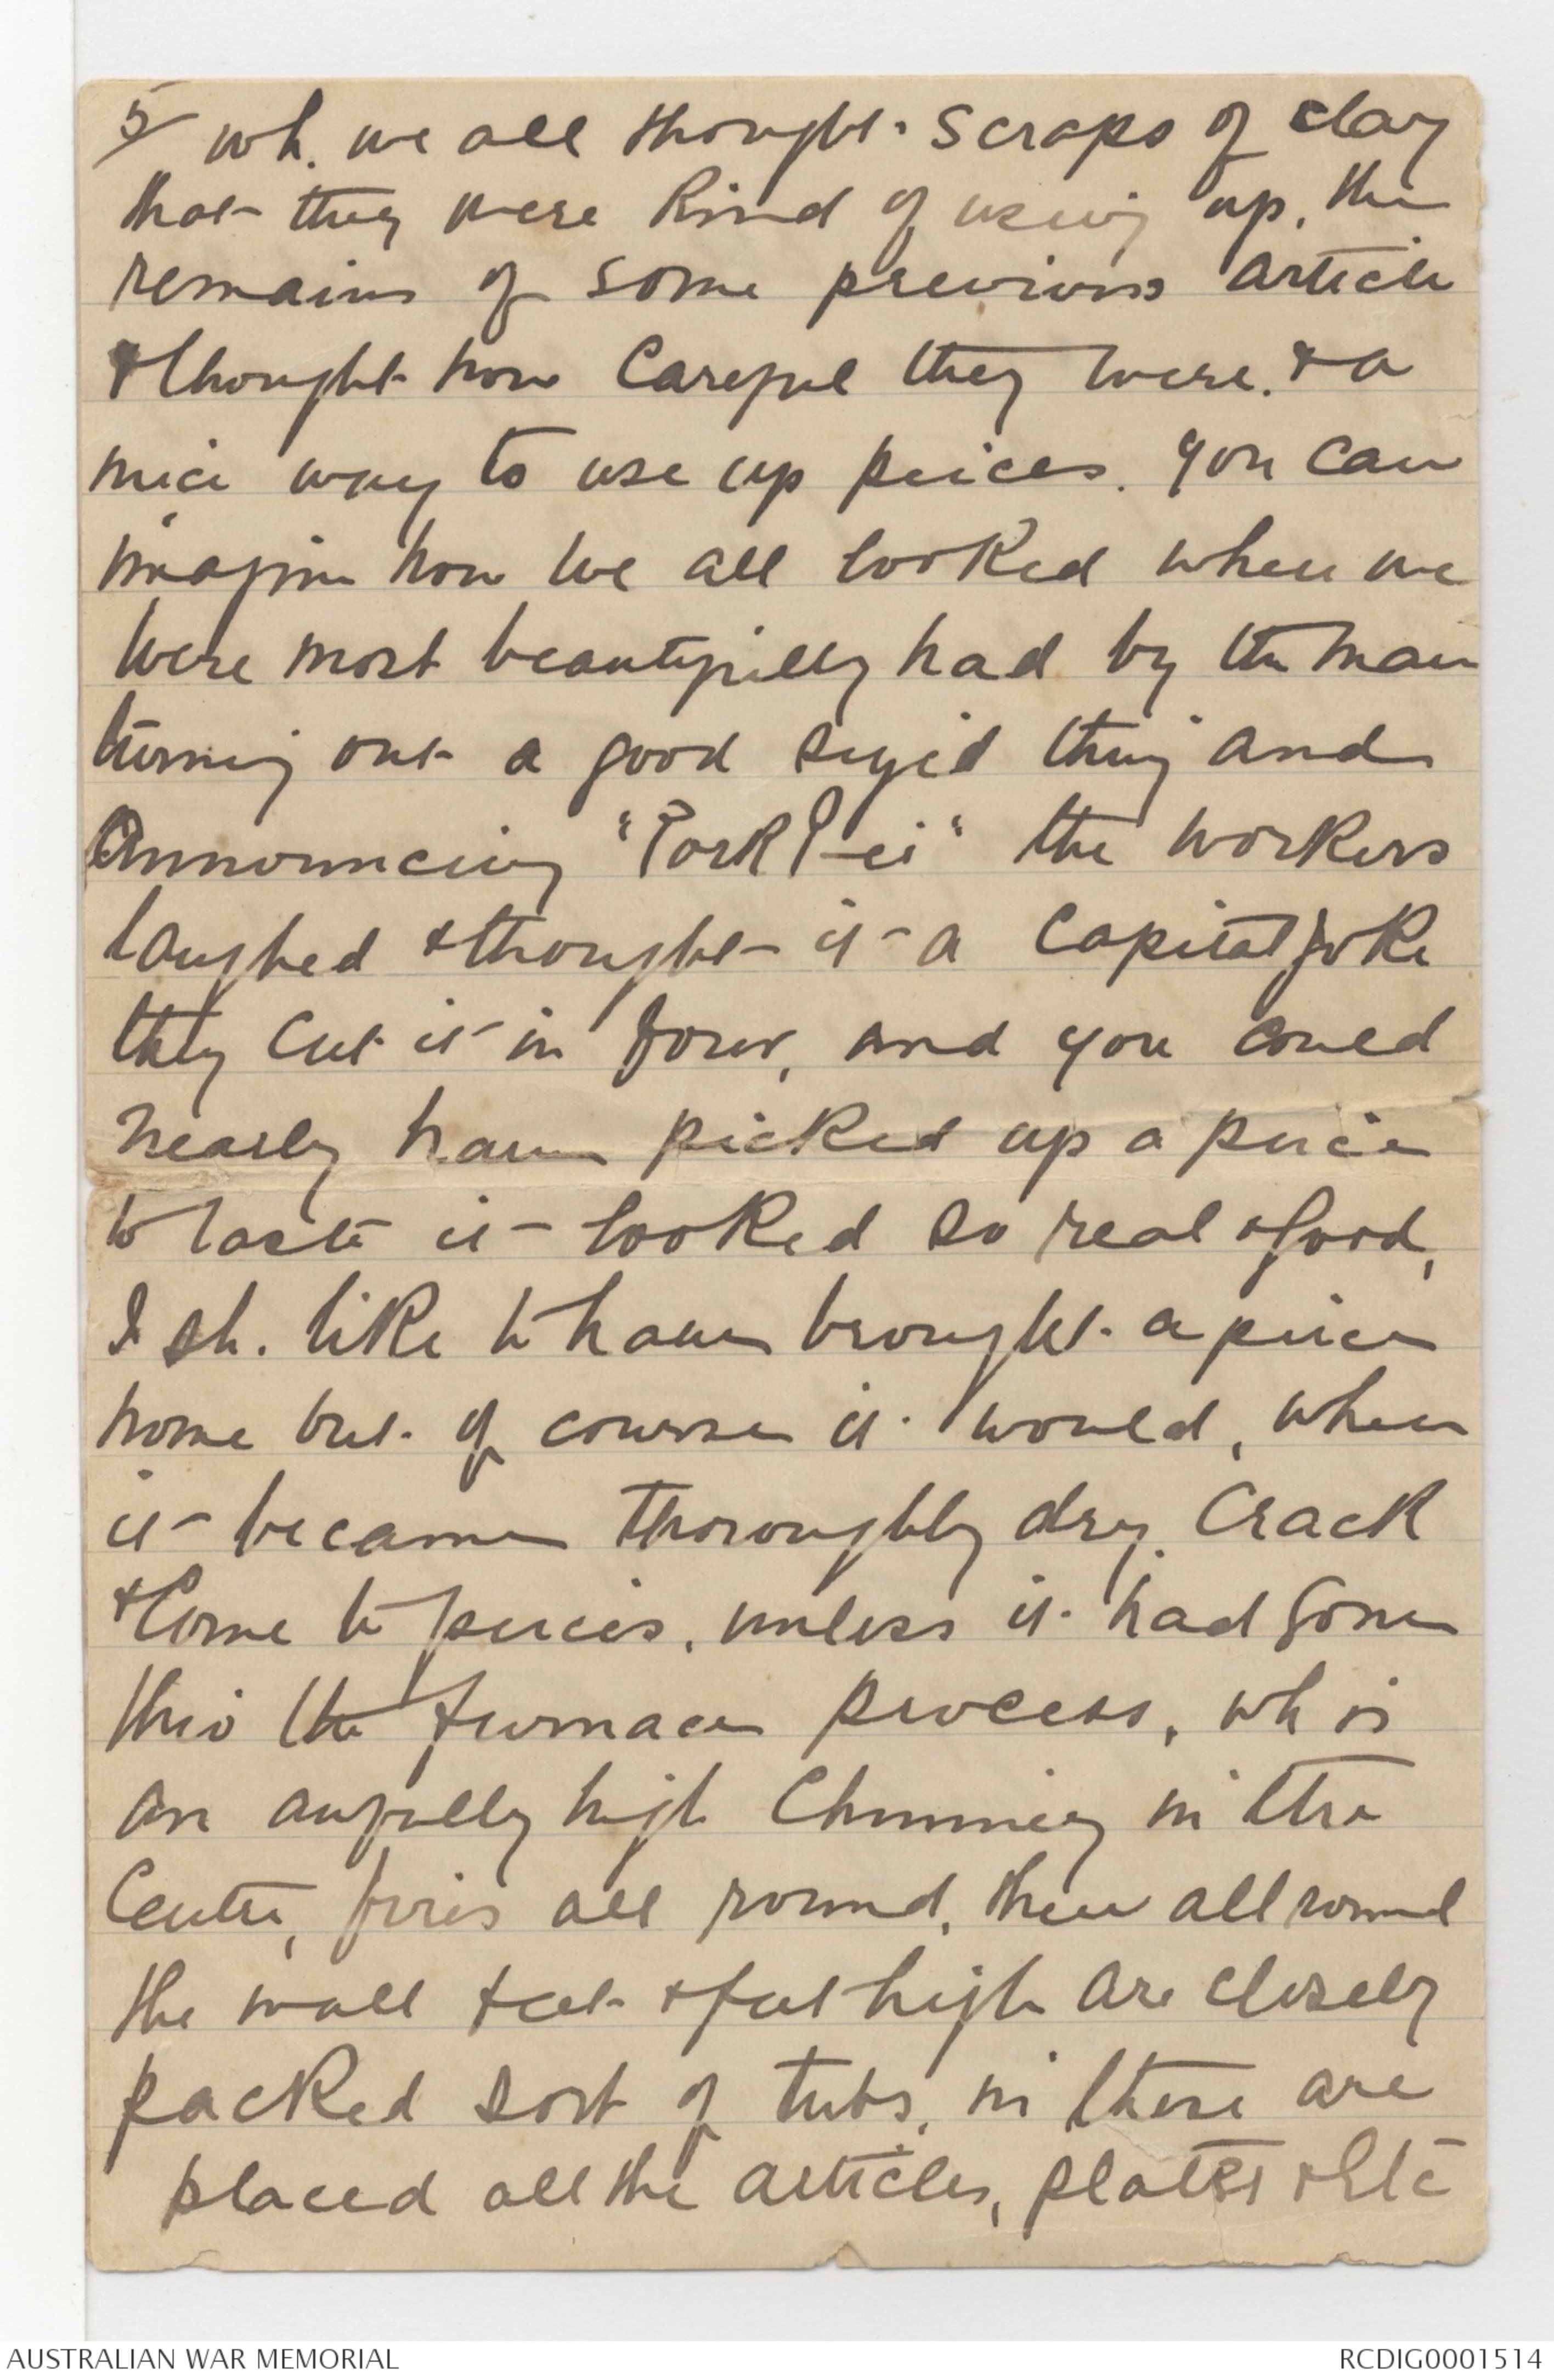 5/ wh. we all thought scraps of clay
that they were kind of using up, the
remains of some previous article
& thought how careful they were. & a
nice way to use up peices. you can
imagine how we all looked when we
were most beautifully had by the man
turning out a good sized thing and
Announcing "Pork Pie" the workers
laughed & thought it a capital joke
they cut it in four, and you could
nearly have picked up a peice
to taste it looked so real & good,
I sh. like to have brought a peice
home but of course it would, when
it became thoroughly dry, crack
& come to peices, unless it had gone
thro the furnace process, wh is
an awfully high Chimney in the
Centre, fires all round, then all round
the wall feet & feet high are closely
packed sort of tubs, in these are
placed all the articles, plates & etc
AUSTRALIAN WAR MEMORIAL
RCDIG0001514